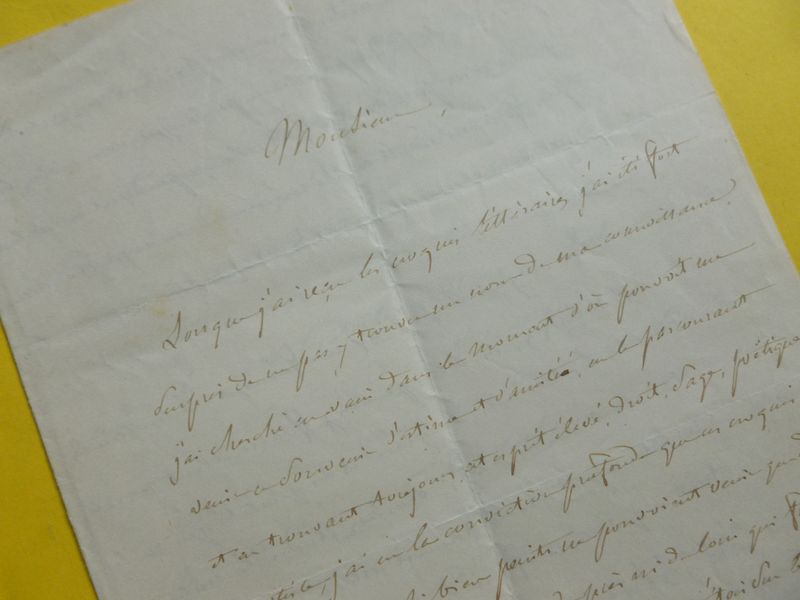 Monsieur,
Lorsque j'ai reçu les croquis littéraires j'ai été fort
surpris de ne pas y trouver un nom de ma connaissance.
j'ai cherché en vain dans le moment d'où pouvoit me
venir ce souvenir d'estime et d'amitié, en le parcourant
et en trouvant toujours cet esprit élevé, droit, sage, poëtique
j'ai eu la conviction profonde que ces croquis
si bien peints ne pouvoient venir que
de près ni de loin qui
sur